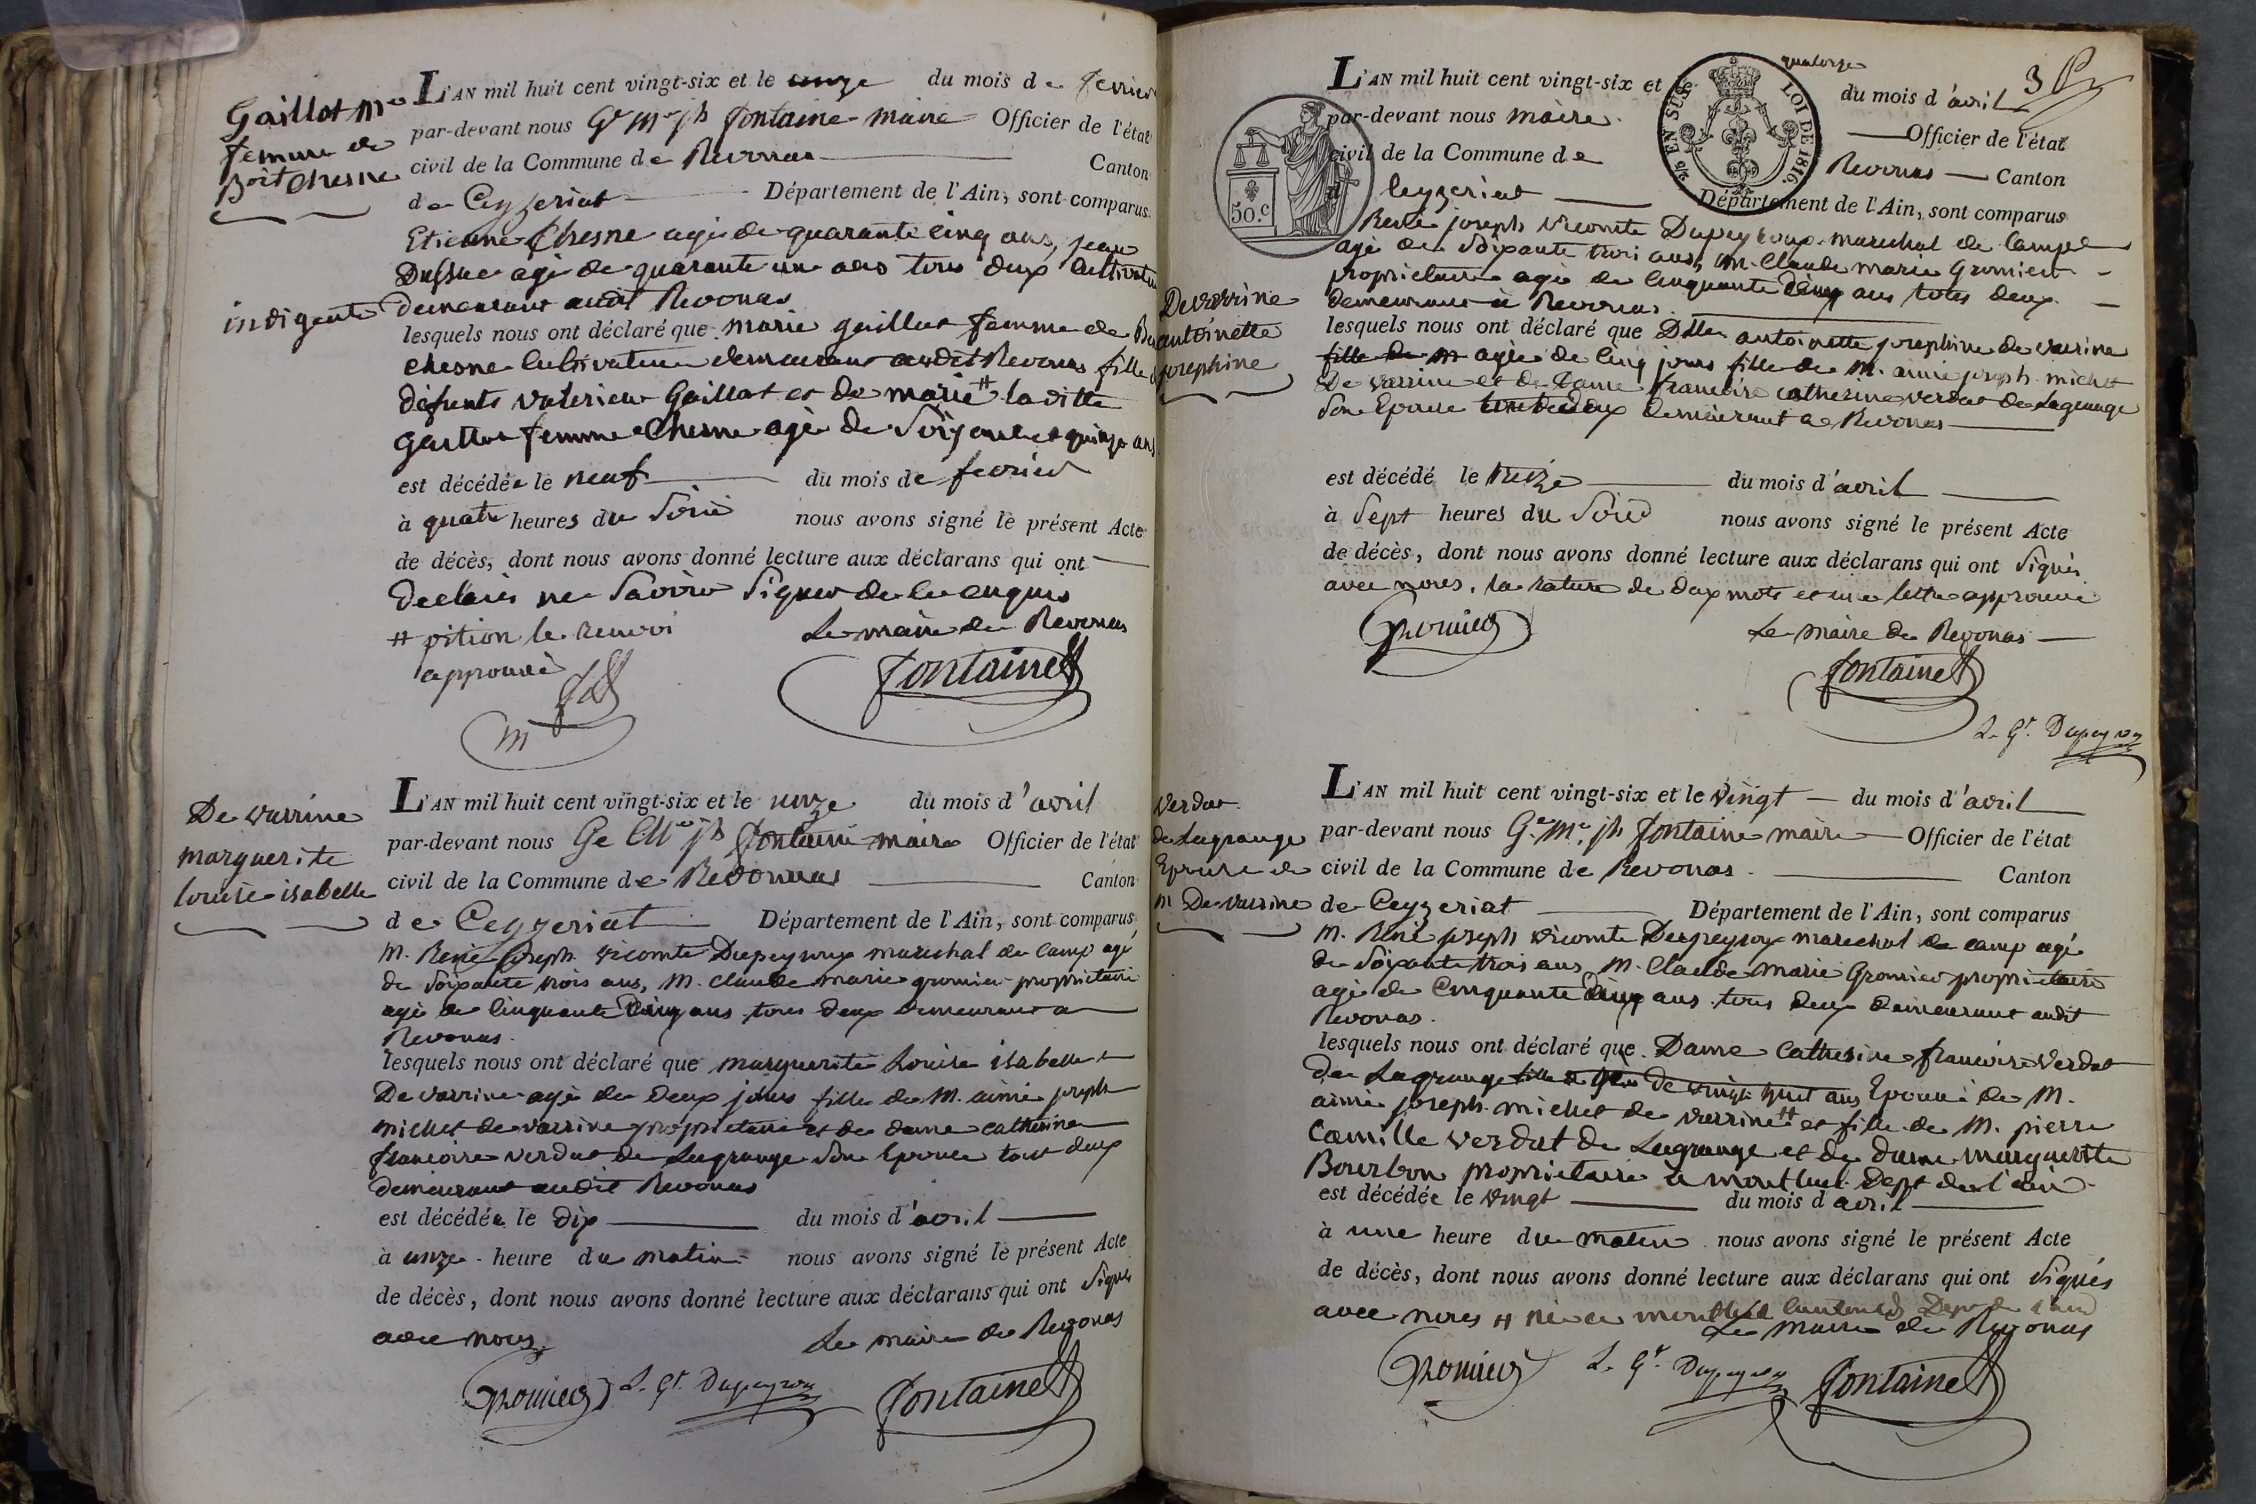 Gaillot Mie
femme de
Boit Chesne
indigente
L'AN mil huit cent vingt-six et le onze du mois de fevrier
par-devant nous Ge Mie jh fontaine maire Officier de l'état
civil de la Commune de Revonas Canton
de Ceyzeriat Département de l'Ain, sont comparus
Etienne Chesne agé de quarante cinq ans, jean
agé de quarante un ans tous deux Cultivateurs
demeurant audit Revonas
lesquels nous ont déclaré que marie gaillot femme de
chesne Cultivateur demeurant audit Revonas fille
défunts valerien Gaillot et de marie # la ditte
gaillot femme Chesne agé de Soixante et quinze ans
est décédée le neuf du mois de fevrier
à quatre heures du Soir nous avons signé le présent Acte
de décès, dont nous avons donné lecture aux déclarans qui ont
declarés ne Savoir Signer de ce enquis
# pition le renvoi
approuvé
Le maire de Revonas
fontaine
De varrine
marguerite
louise isabelle
L'AN mil huit cent vingt-six et le onze du mois d'avril
par-devant nous Ge Mie jh fontaine maire Officier de l'état
civil de la Commune de Revonnas Canton
de Ceyzeriat Département de l'Ain, sont comparus
M. René joseph vicomte Dupeyroux marechal de Camp agé
de Soixante trois ans, M. claude marie gromier proprietaire
agé de Cinquante Cinq ans tous deux demeurant a
Revonas.
lesquels nous ont déclaré que marguerite Louise isabelle
De varrine agé de deux jours fille de M. aimé joseph
michet de varrine proprietaire et de dame catherine
francoise verdat de Lagrange Son Epouse tout deux
demeurant audit Revonas
est décédée le dix du mois d'avril
à onze heure du matin nous avons signé le présent Acte
de décès, dont nous avons donné lecture aux déclarans qui ont Signés
avec nous.
Le maire de Revonas
Gromier L. Gt. Dupeyrou fontaine
3
50.c
EN SUS.
LOI DE 1816.
Devarrine
antoinette
josephine
L'AN mil huit cent vingt-six et le quatorze du mois d'avril
par-devant nous maire Officier de l'état
civil de la Commune de Revonas Canton
d Ceyzeriat Département de l'Ain, sont comparus
René joseph vicomte Dupeyroux marechal de Camp
agé de Soixante trois ans, M. Claude marie Gromier
proprietaire agé de Cinquante Cinq ans tous deux
demeurant à Revonas.
lesquels nous ont déclaré que Dlle antoinette josephine de varrine
fille de M agée de Cinq jours fille de M. aimé joseph michet
De varrine et de Dame francoise catherine verdat de Lagrange
Son Epouse tout deux demeurant a Revonas
est décédé le treize du mois d'avril
à Sept heures du Soir nous avons signé le présent Acte
de décès, dont nous avons donné lecture aux déclarans qui ont Signés
avec nous. la rature de deux mots et une lettre approuvé
Gromier
Le maire de Revonas
fontaine
L. Gt. Dupeyrou
Verdat
de Lagrange
Epouse de
M De varrine
L'AN mil huit cent vingt-six et le vingt du mois d'avril
par-devant nous Ge Mie jh fontaine maire Officier de l'état
civil de la Commune de Revonas. Canton
de Ceyzeriat Département de l'Ain, sont comparus
M. René joseph vicomte Dupeyroux marechal de camp agé
de Soixante trois ans M. Claude marie Gromier proprietaire
agé de Cinquante Cinq ans tous deux demeurant audit
Revonas.
lesquels nous ont déclaré que Dame Catherine francoise Verdat
de Lagrange de vingt huit ans Epouse de M.
aimé joseph michet de varrine # et fille de M. pierre
Camille Verdat de Lagrange et de Dame marguerite
Bourbon proprietaire a montluel Dept de l'ain
est décédée le vingt du mois d avril
à une heure du matin nous avons signé le présent Acte
de décès, dont nous avons donné lecture aux déclarans qui ont Signés
avec nous # née a montluel Dept de l'ain
Le maire de Revonas
Gromier L. Gt. Dupeyrou fontaine